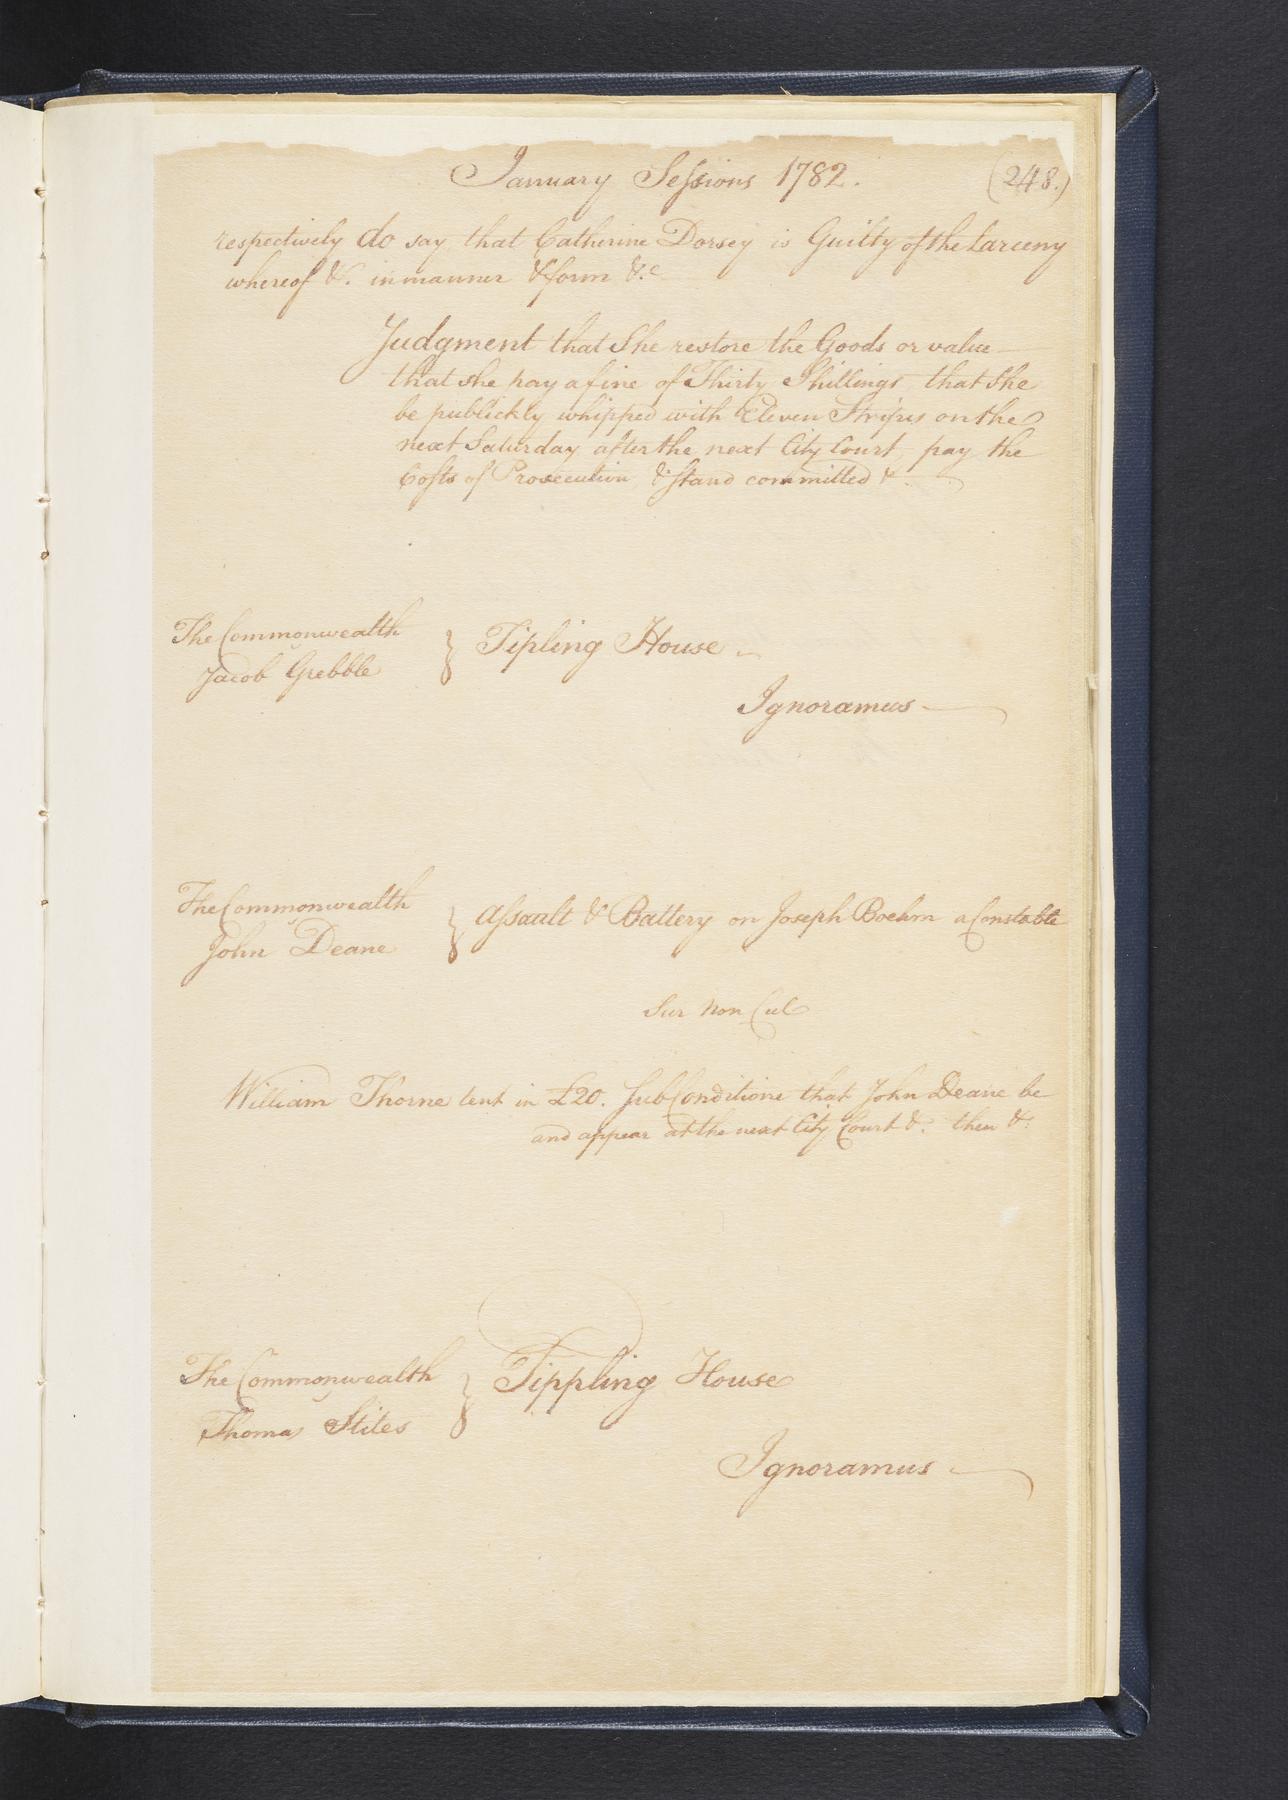 January Sessions 1782.
(248.)
respectively do say that Catherine Dorsey is Guilty of the Larceny
whereof &c. in manner & form &c
Judgment that She restore the Goods or value
that she pay a fine of Thirty Shillings, that She
be publickly whipped with Eleven Stripes on the
next Saturday after the next City Court, pay the
Costs of Prosecution & Stand committed &c.
The Commonwealth
Jacob Grebble
} Tipling House
Ignoramus
The Commonwealth
John Deane
} Assault & Battery on Joseph Boehm a Constable
Sur Non Cul
William Thorne tent in £20. Sub Conditione that John Deane be
and appear at the next City Court &c. then &c.
The Commonwealth
Thomas Stites
} Tippling House
Ignoramus